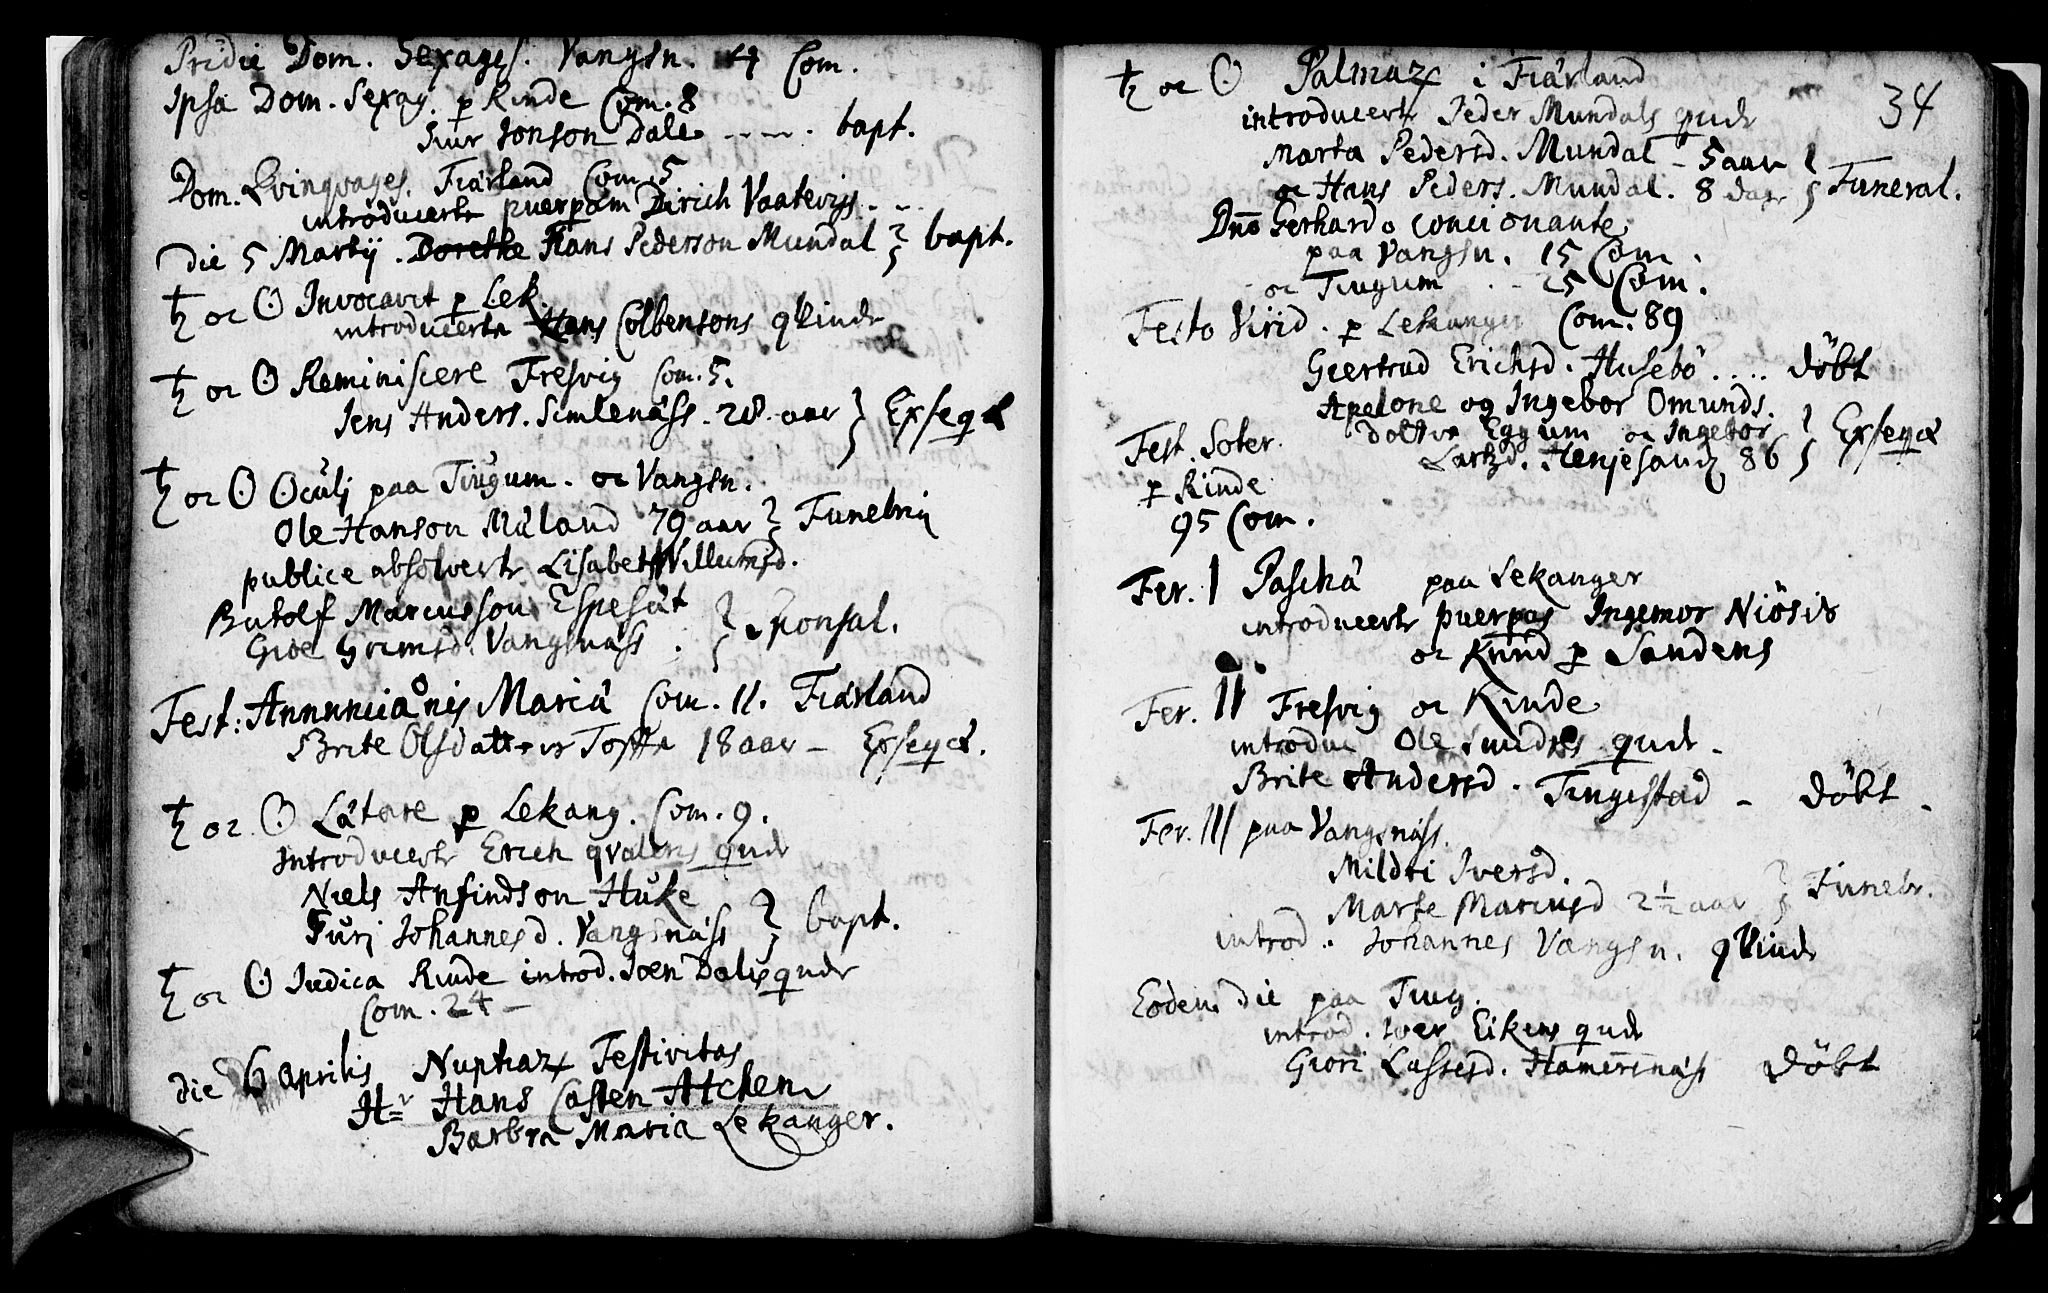 Pridie Dom. Sexages. Vangsn. 4 Com.
Ipsa Dom. Sexag. p Rinde Com. 8
Siur Jonson Dale ---- . bapt.
Dom. Qvinqvages. Fiärland Com. 5
introducertr puerpam Dirich Vaatevigs . ..
die 5 Martij . Dorethe Hans Pederson Mundal } bapt.
♄ oc ☉ Invocavit p Lek.
introducertr Hans Colbensons qvindr
♄ oc ☉ Reminiscere Fresvig Com. 5.
Jens Anders. Simlenäss. 28. aar } Exseqæ
♄ oc ☉ Oculj paa Tiugum. oc Vangsn.
Ole Hanson Måland 79 aar } Funebrij
publice absolvertr Lisabeth Villumsd.
Butolf Marcusson Espesät
Giøe Grimsd. Vangsnäss . } Sponsal.
Fest: Annunciaõnis Mariä Com. 11. Fiärland
Brite Olsdatter Toffte 18 aar - Exseqæ.
♄ oc ☉ Lätare p Lekang. Com. 9.
Introducertr Erich qvalens qudr
Niels Anfindson Huke
Turj Johannesd. Vangsnäss } bapt.
♄ oc ☉ Judica Rinde introd. Joen Dales qudr
Com. 24 -
die 6 Aprilis Nuptiaꝝ Festivitas
Hr Hans Casten Atchen
Barbra Maria Lekanger.
34
♄ oc ☉ Palmaꝝ i Fiärland
introducertr Peder Mundals qudr
Marta Pedersd. Mundal - 5 aar
oc Hans Peders. Mundal. 8 dagr } Funeral.
Dno Gerhardo concionante
paa Vangsn. 15 Com.
oc Tiugum . - 25 Com.
Festo Virid. p Lekanger Com. 89
Giertrud Erichsd. Husebö .... döbt
Apelone og Ingebor Omunds.
dottre Eggum oc Ingebor
Lartzd. Henjesand 86 } Exseqæ
Fest. Soter.
p Rinde
95 Com.
Fer. I Paschä paa Lekanger
introducertr puerpas Ingemor Niösis
oc Knud p Sandens
Fer. II Fresvig oc Rinde
introduc Ole Smedes qudr.
Brite Andersd. Tingestad - döbt -
Fer. III paa Vangsnäss.
Mildri Iversd.
Marte Mariusd 2 1/2 aar } Funebr.
introd.. Johannes Vangsn. qvindr
Eodem die paa Tiug.
introd. Iver Eikens qudr
Giöri Lassesd. Hamernäss döbt